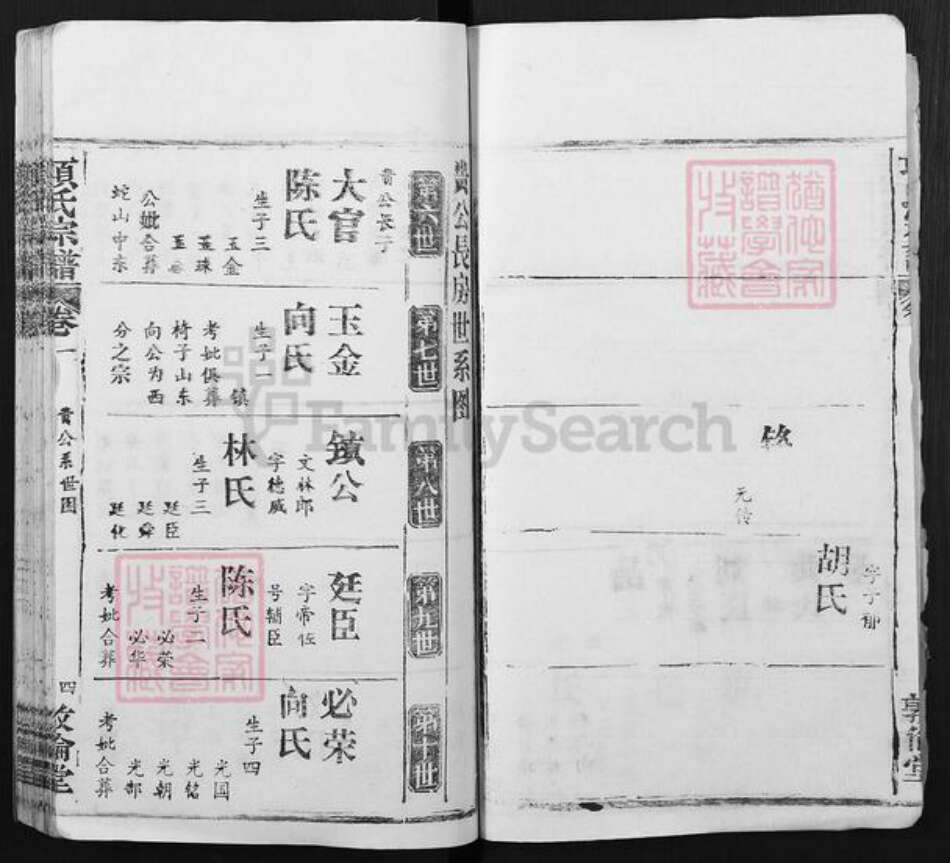 字子郁
胡氏
元传
敦倫堂
贵公長房世系图
第六世
贵公长子
大官
陈氏
生子三
玉金
玉珠
公妣合葬
蛇山中央
第七世
玉金
向氏
生子一
镇
考妣俱葬
椅子山东
向公为西
分之宗
第八世
镇公
文林郎
字德威
林氏
生子三
廷臣
廷舜
廷化
第九世
廷臣
字帝佐
号辅臣
陈氏
生子二
必荣
必华
考妣合葬
第十世
必荣
向氏
生子四
光国
光铭
光朝
光郜
考妣合葬
項氏宗譜
卷一
贵公系世图
四
敦倫堂
猶他家譜學會收藏
猶他家譜學會收藏
FamilySearch